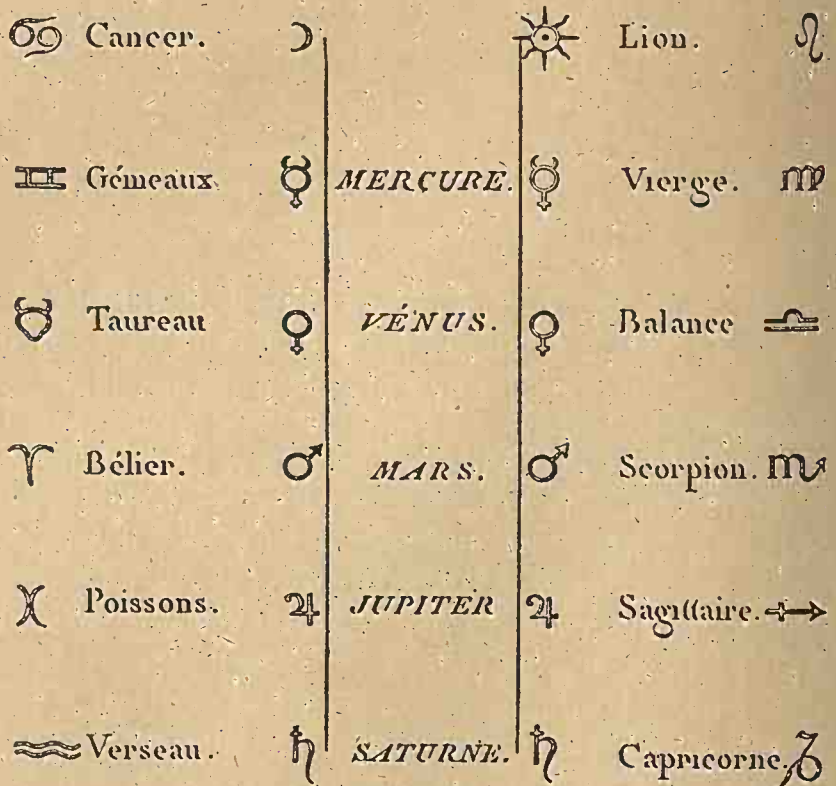 ♋ Cancer. ☽ ☉ Lion. ♌
♊ Gémeaux. ☿ MERCURE. ☿ Vierge. ♍
♉ Taureau ♀ VÉNUS. ♀ Balance ♎
♈ Bélier. ♂ MARS. ♂ Scorpion. ♏
♓ Poissons. ♃ JUPITER ♃ Sagittaire. ♐
♒ Verseau. ♄ SATURNE. ♄ Capricorne. ♑